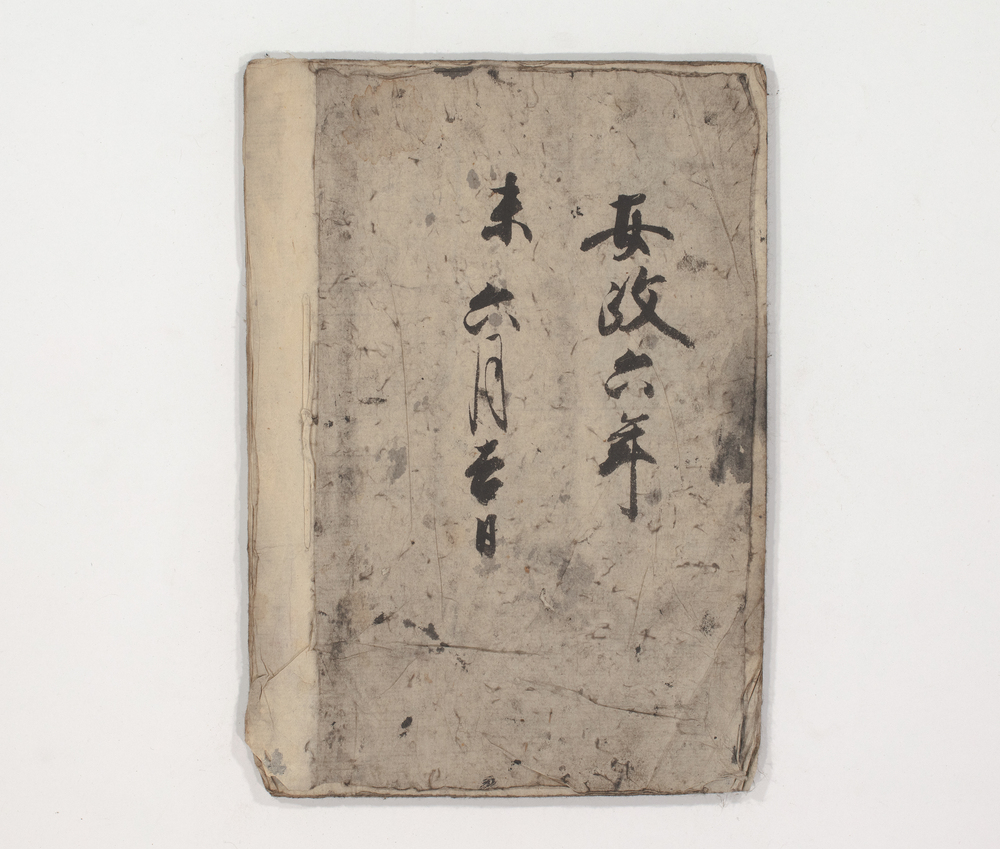 安政六年
未 六月吉日